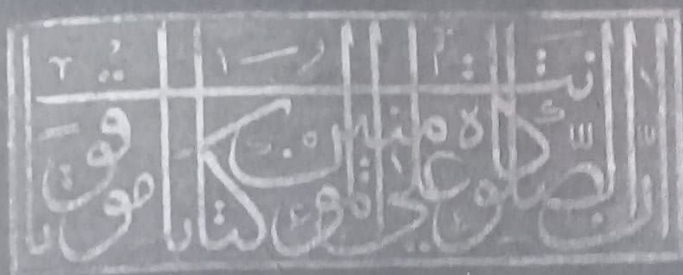 ان الصلوة كانت على المؤمنين كتابا موقوتا